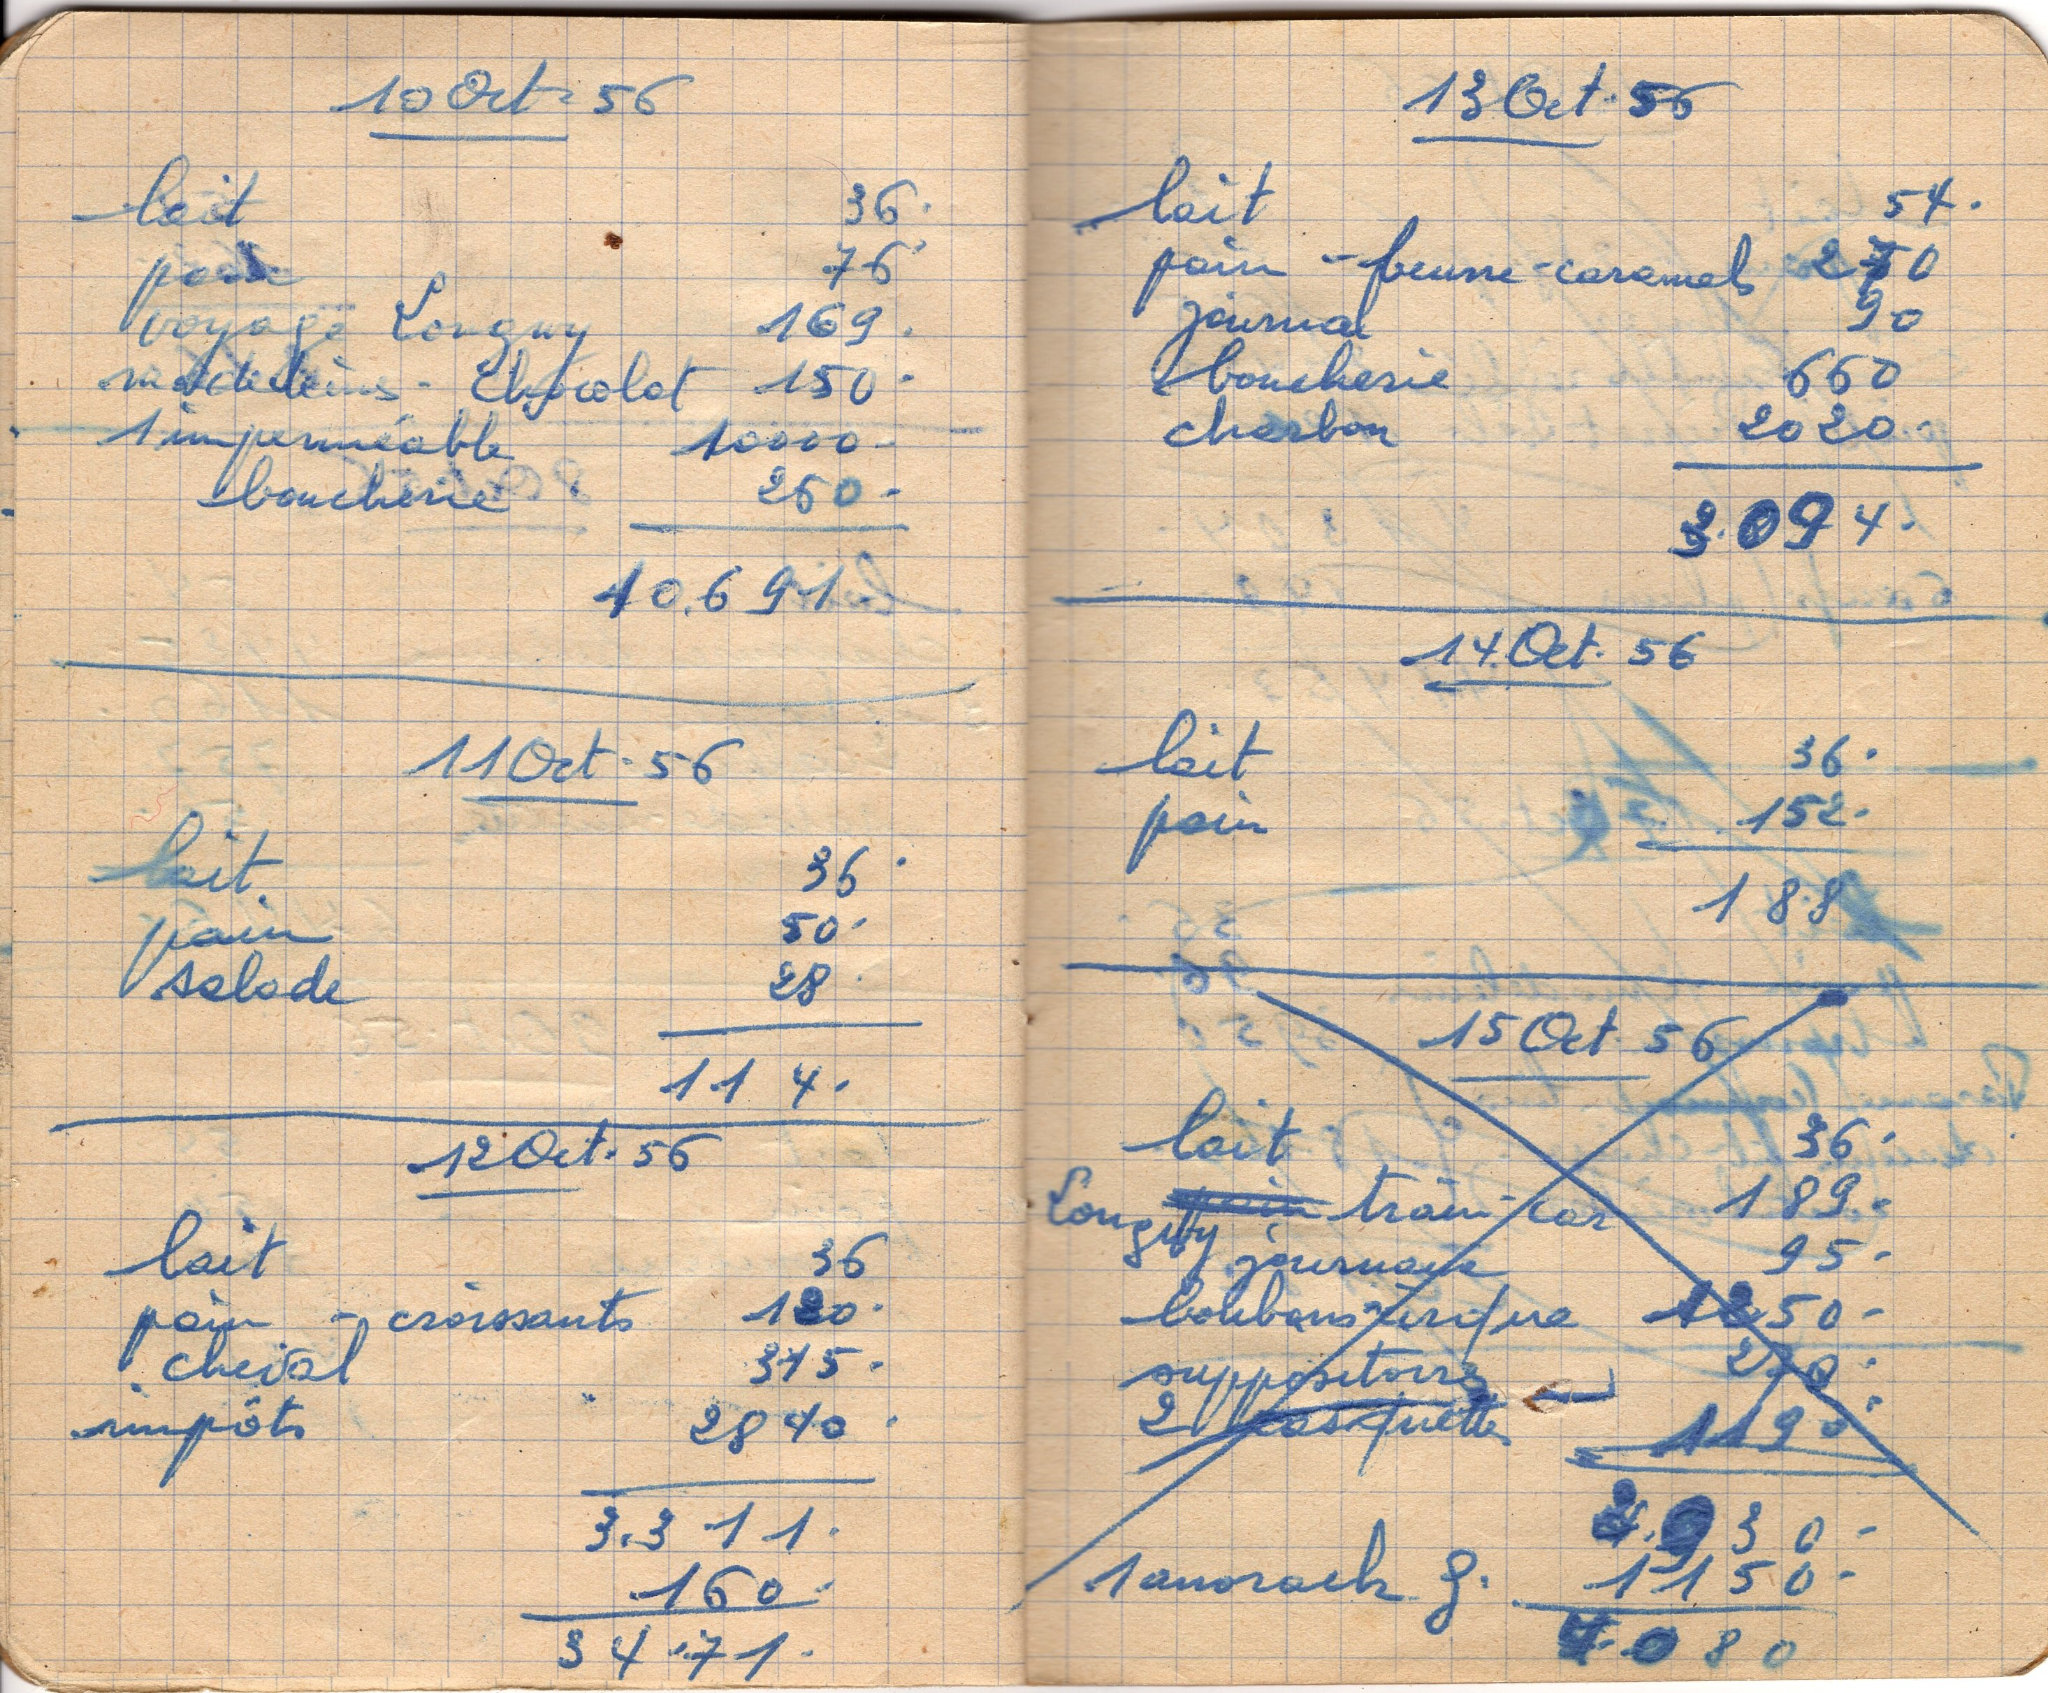 10 Oct. 56
lait 36.
pain 76
voyage Longwy 169.
madeleins - Chocolat 150.
1 imperméable 10000.
boucherie 260.
10.691.
11 Oct. 56
lait. 36.
pain 50.
salade 28.
114.
12 Oct. 56
lait 36
pain - croissants 120.
cheval 315.
impôts " 2840.
3.311.
160.
3471.
13 Oct. 56
lait 54.
pain - beurre - caramels 270
journal 90
boucherie 660
charbon 2020.
3.094.
14. Oct. 56
lait 36.
pain 152.
188
15 Oct. 56
lait 36.
Longwy pain train - car 189.
journaux 95.
bonbons 1250.
suppositoire
2 casquettes 1190
2.930.
1 anorack g. 1150.
4.080